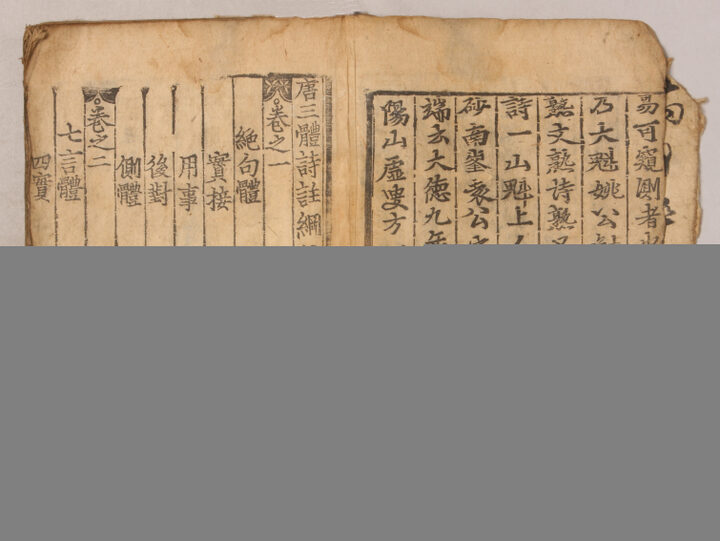 易可窺則者
乃大魁姚公
熟文熟詩熟
詩一山魁上
砂南翠裒公
端玄大德九年
陽山虛叟方
唐三體詩註綱
卷之一
絕句體
實接
用事
後對
側體
卷之二
七言體
四實